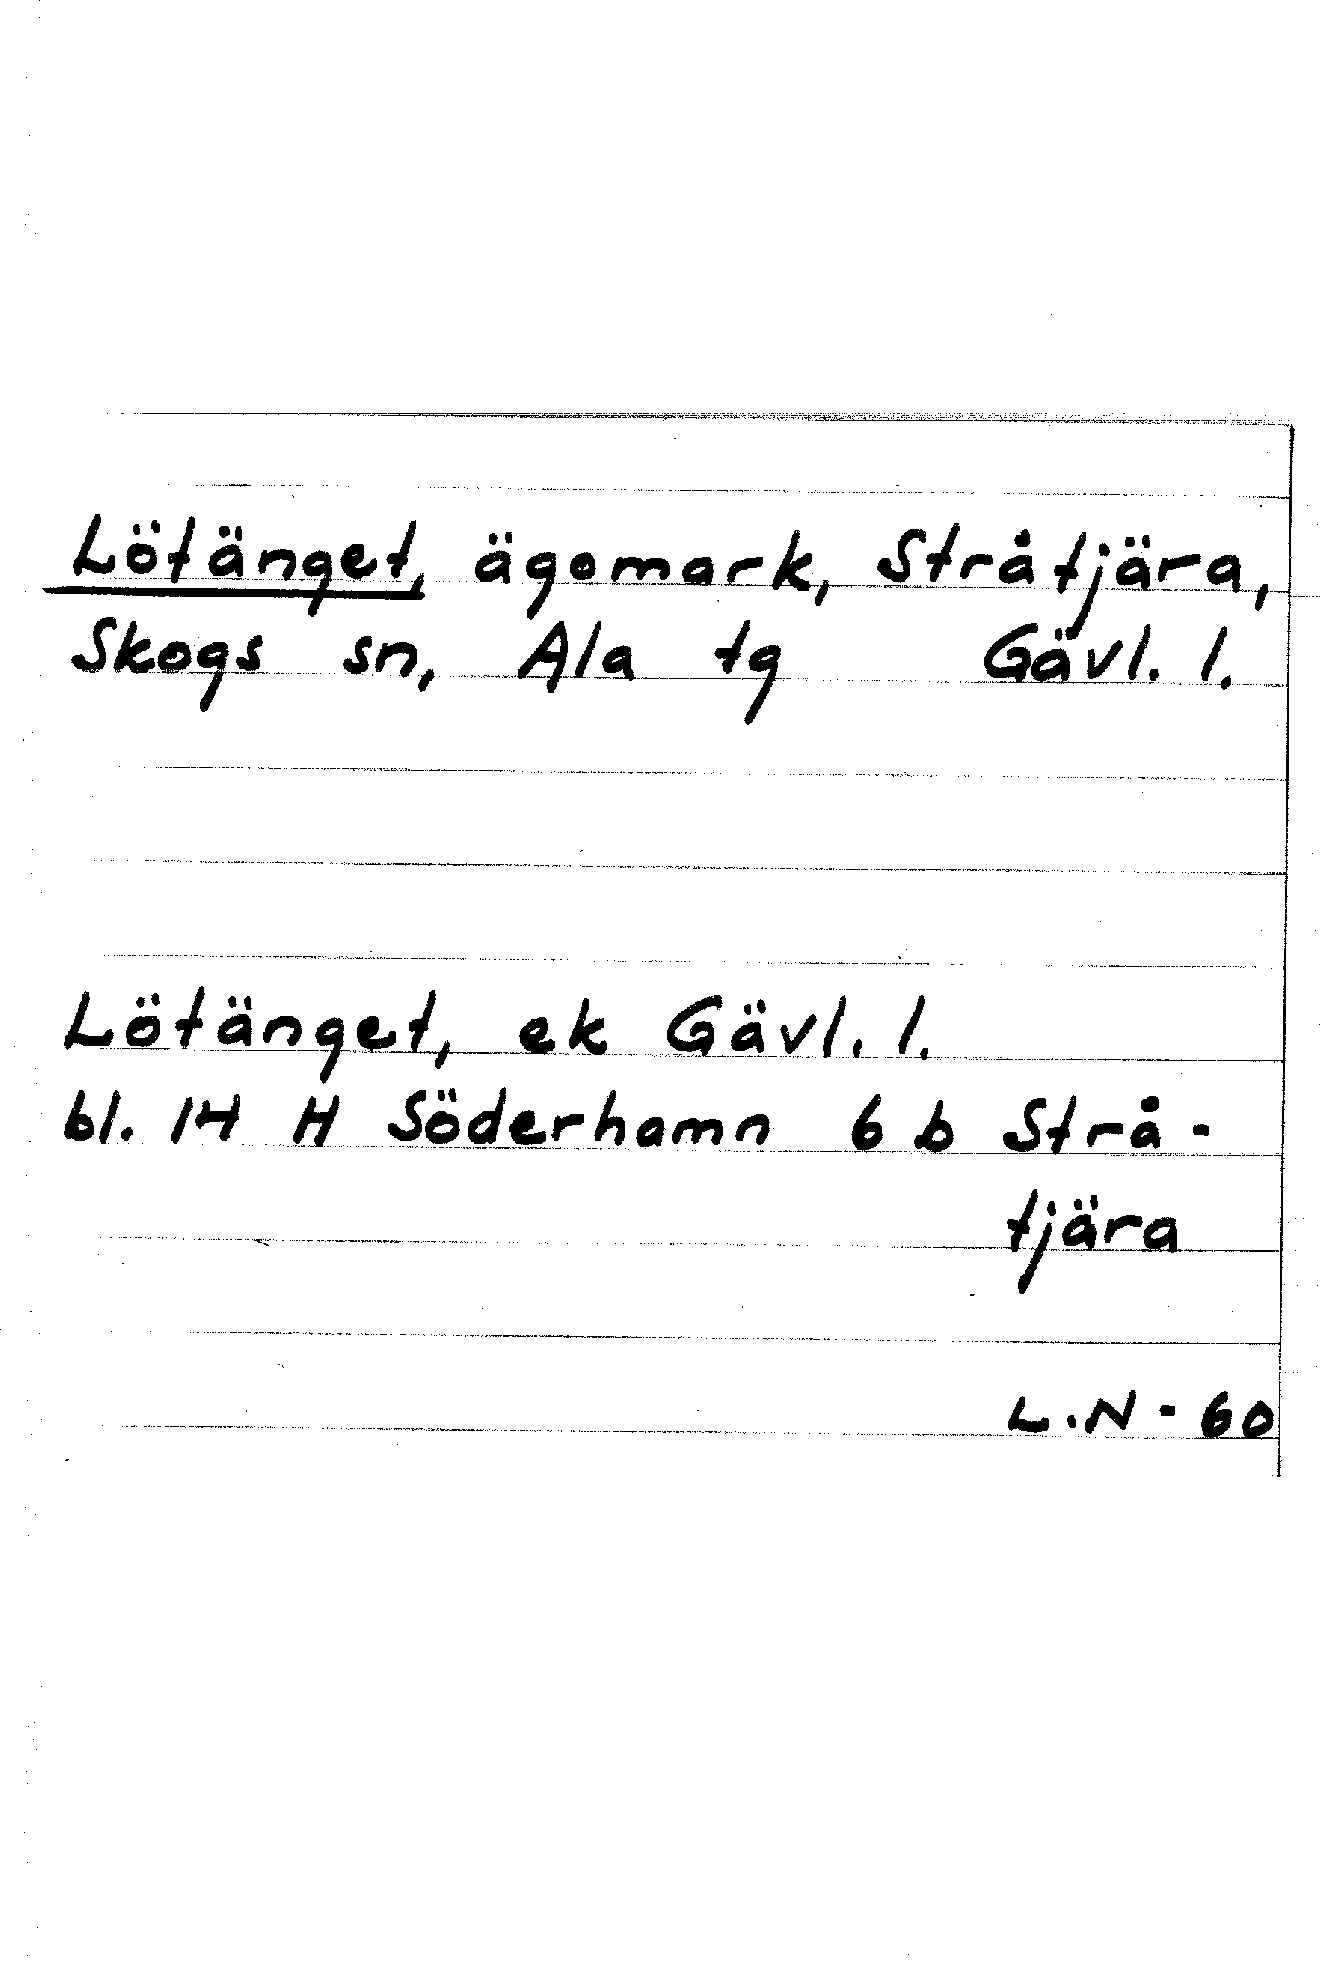 Lötänget, ägomark, Stråtjära,
Skogs sn, Ala tg Gävl. l.
Lötänget, ek Gävl. l.
bl. 14 H Söderhamn 6 b Strå-
tjära
L.N - 60